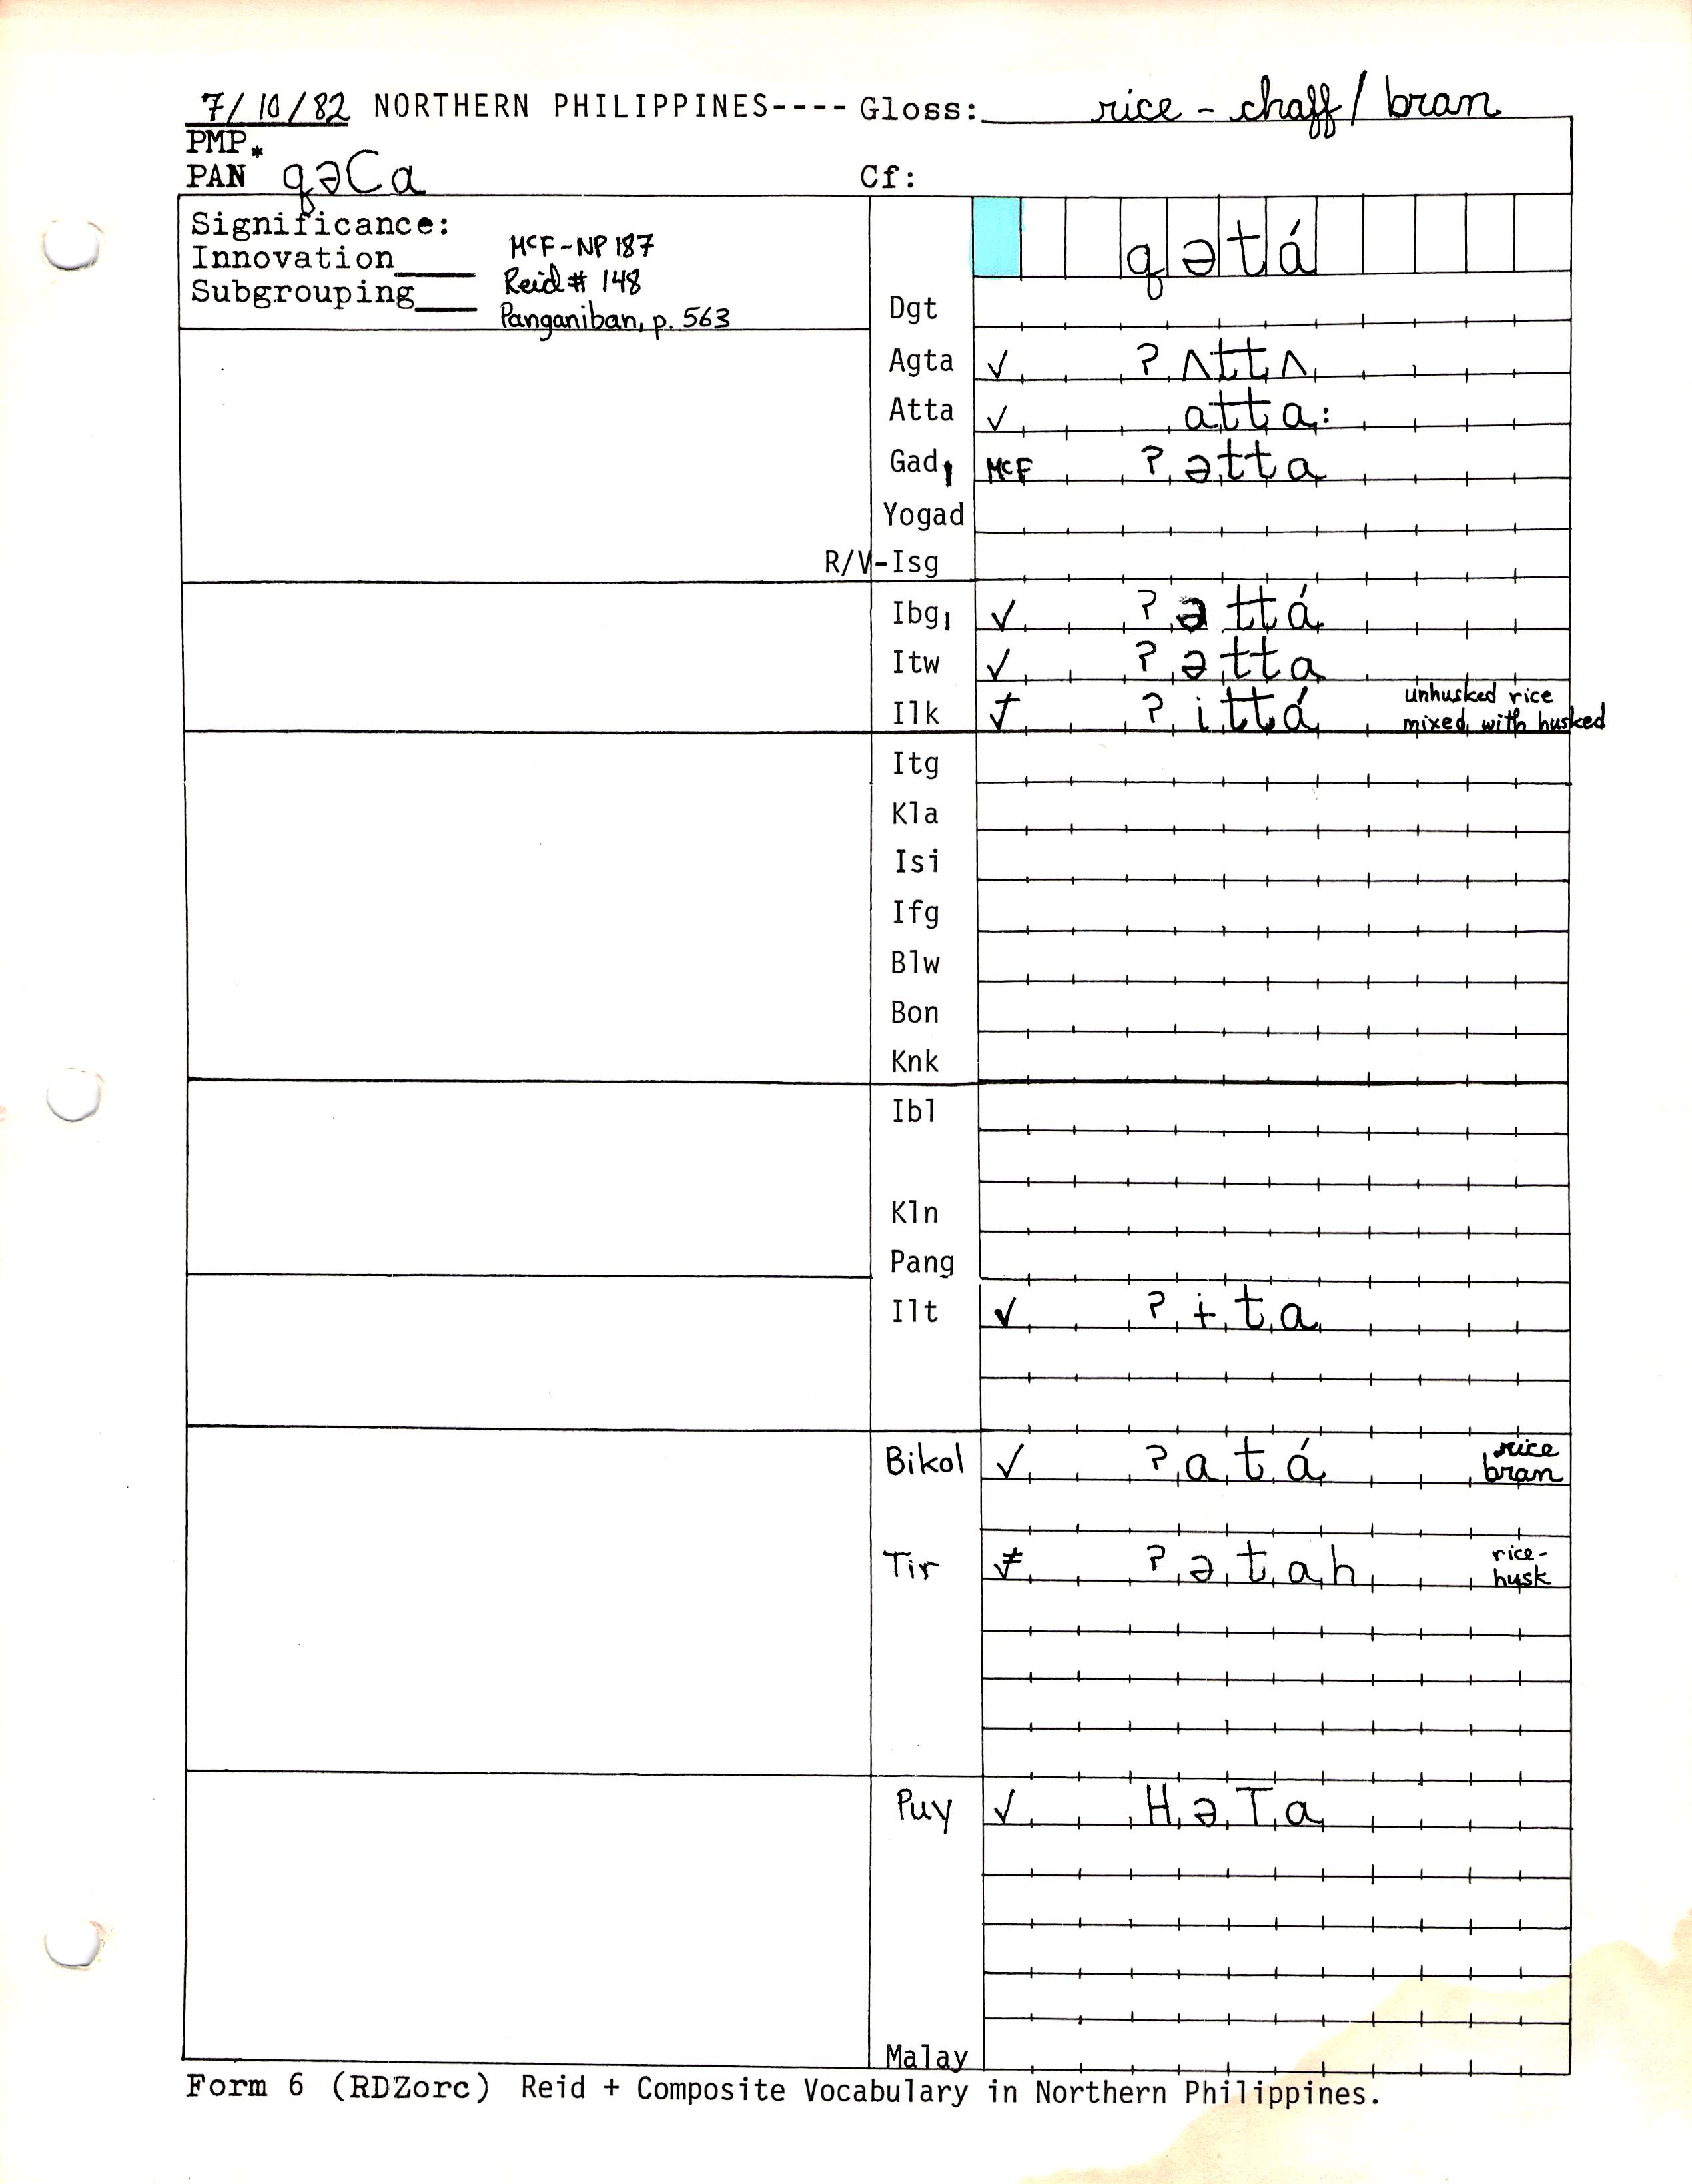 7/10/82 NORTHERN PHILIPPINES---- Gloss: rice - chaff / bran
PMP *
PAN qəCa Cf:
Significance:
Innovation____ McF-NP 187
Subgrouping____ Reid # 148
Panganiban, p. 563
qətá
Dgt
Agta ✓ ʔʌttʌ
Atta ✓ atta:
Gad1 McF ʔətta
Yogad
R/V-Isg
Ibg1 ✓ ʔəttá
Itw ✓ ʔətta
Ilk ʔittá unhusked rice
mixed with husked
Itg
Kla
Isi
Ifg
Blw
Bon
Knk
Ibl
Kln
Pang
Ilt ✓ ʔɨta
Bikol ✓ ʔatá rice
bran
Tir ʔətah rice-
husk
Puy ✓ HəTa
Malay
Form 6 (RDZorc) Reid + Composite Vocabulary in Northern Philippines.